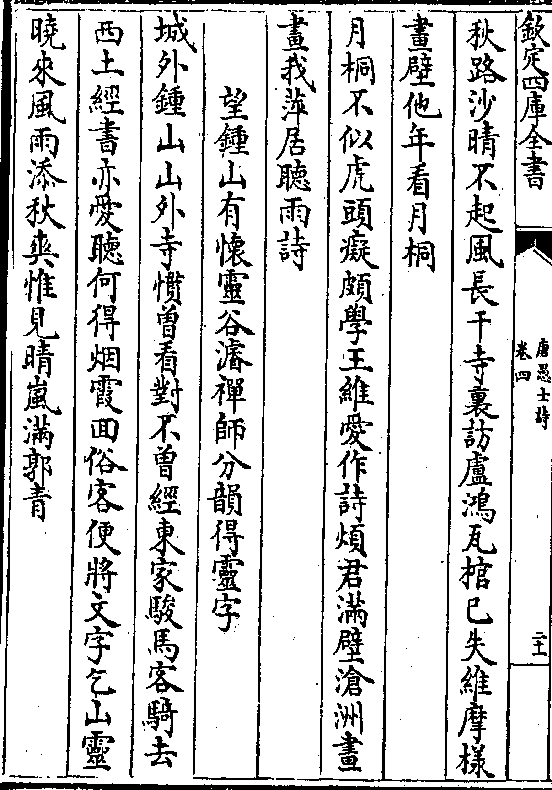 欽定四庫全書
唐愚士詩
卷四
二十一
秋路沙晴不起風長干寺裏訪盧鴻瓦棺已失維摩樣
畫壁他年看月桐
月桐不似虎頭癡頗學王維愛作詩煩君滿壁滄洲畫
畫我萍居聽雨詩
望鍾山有懷靈谷濬禪師分韻得靈字
城外鍾山山外寺慣曽看對不曽經東家駿馬客騎去
西土經書亦愛聽何得烟霞回俗客便將文字乞山靈
曉來風雨添秋爽惟見晴嵐滿郭青